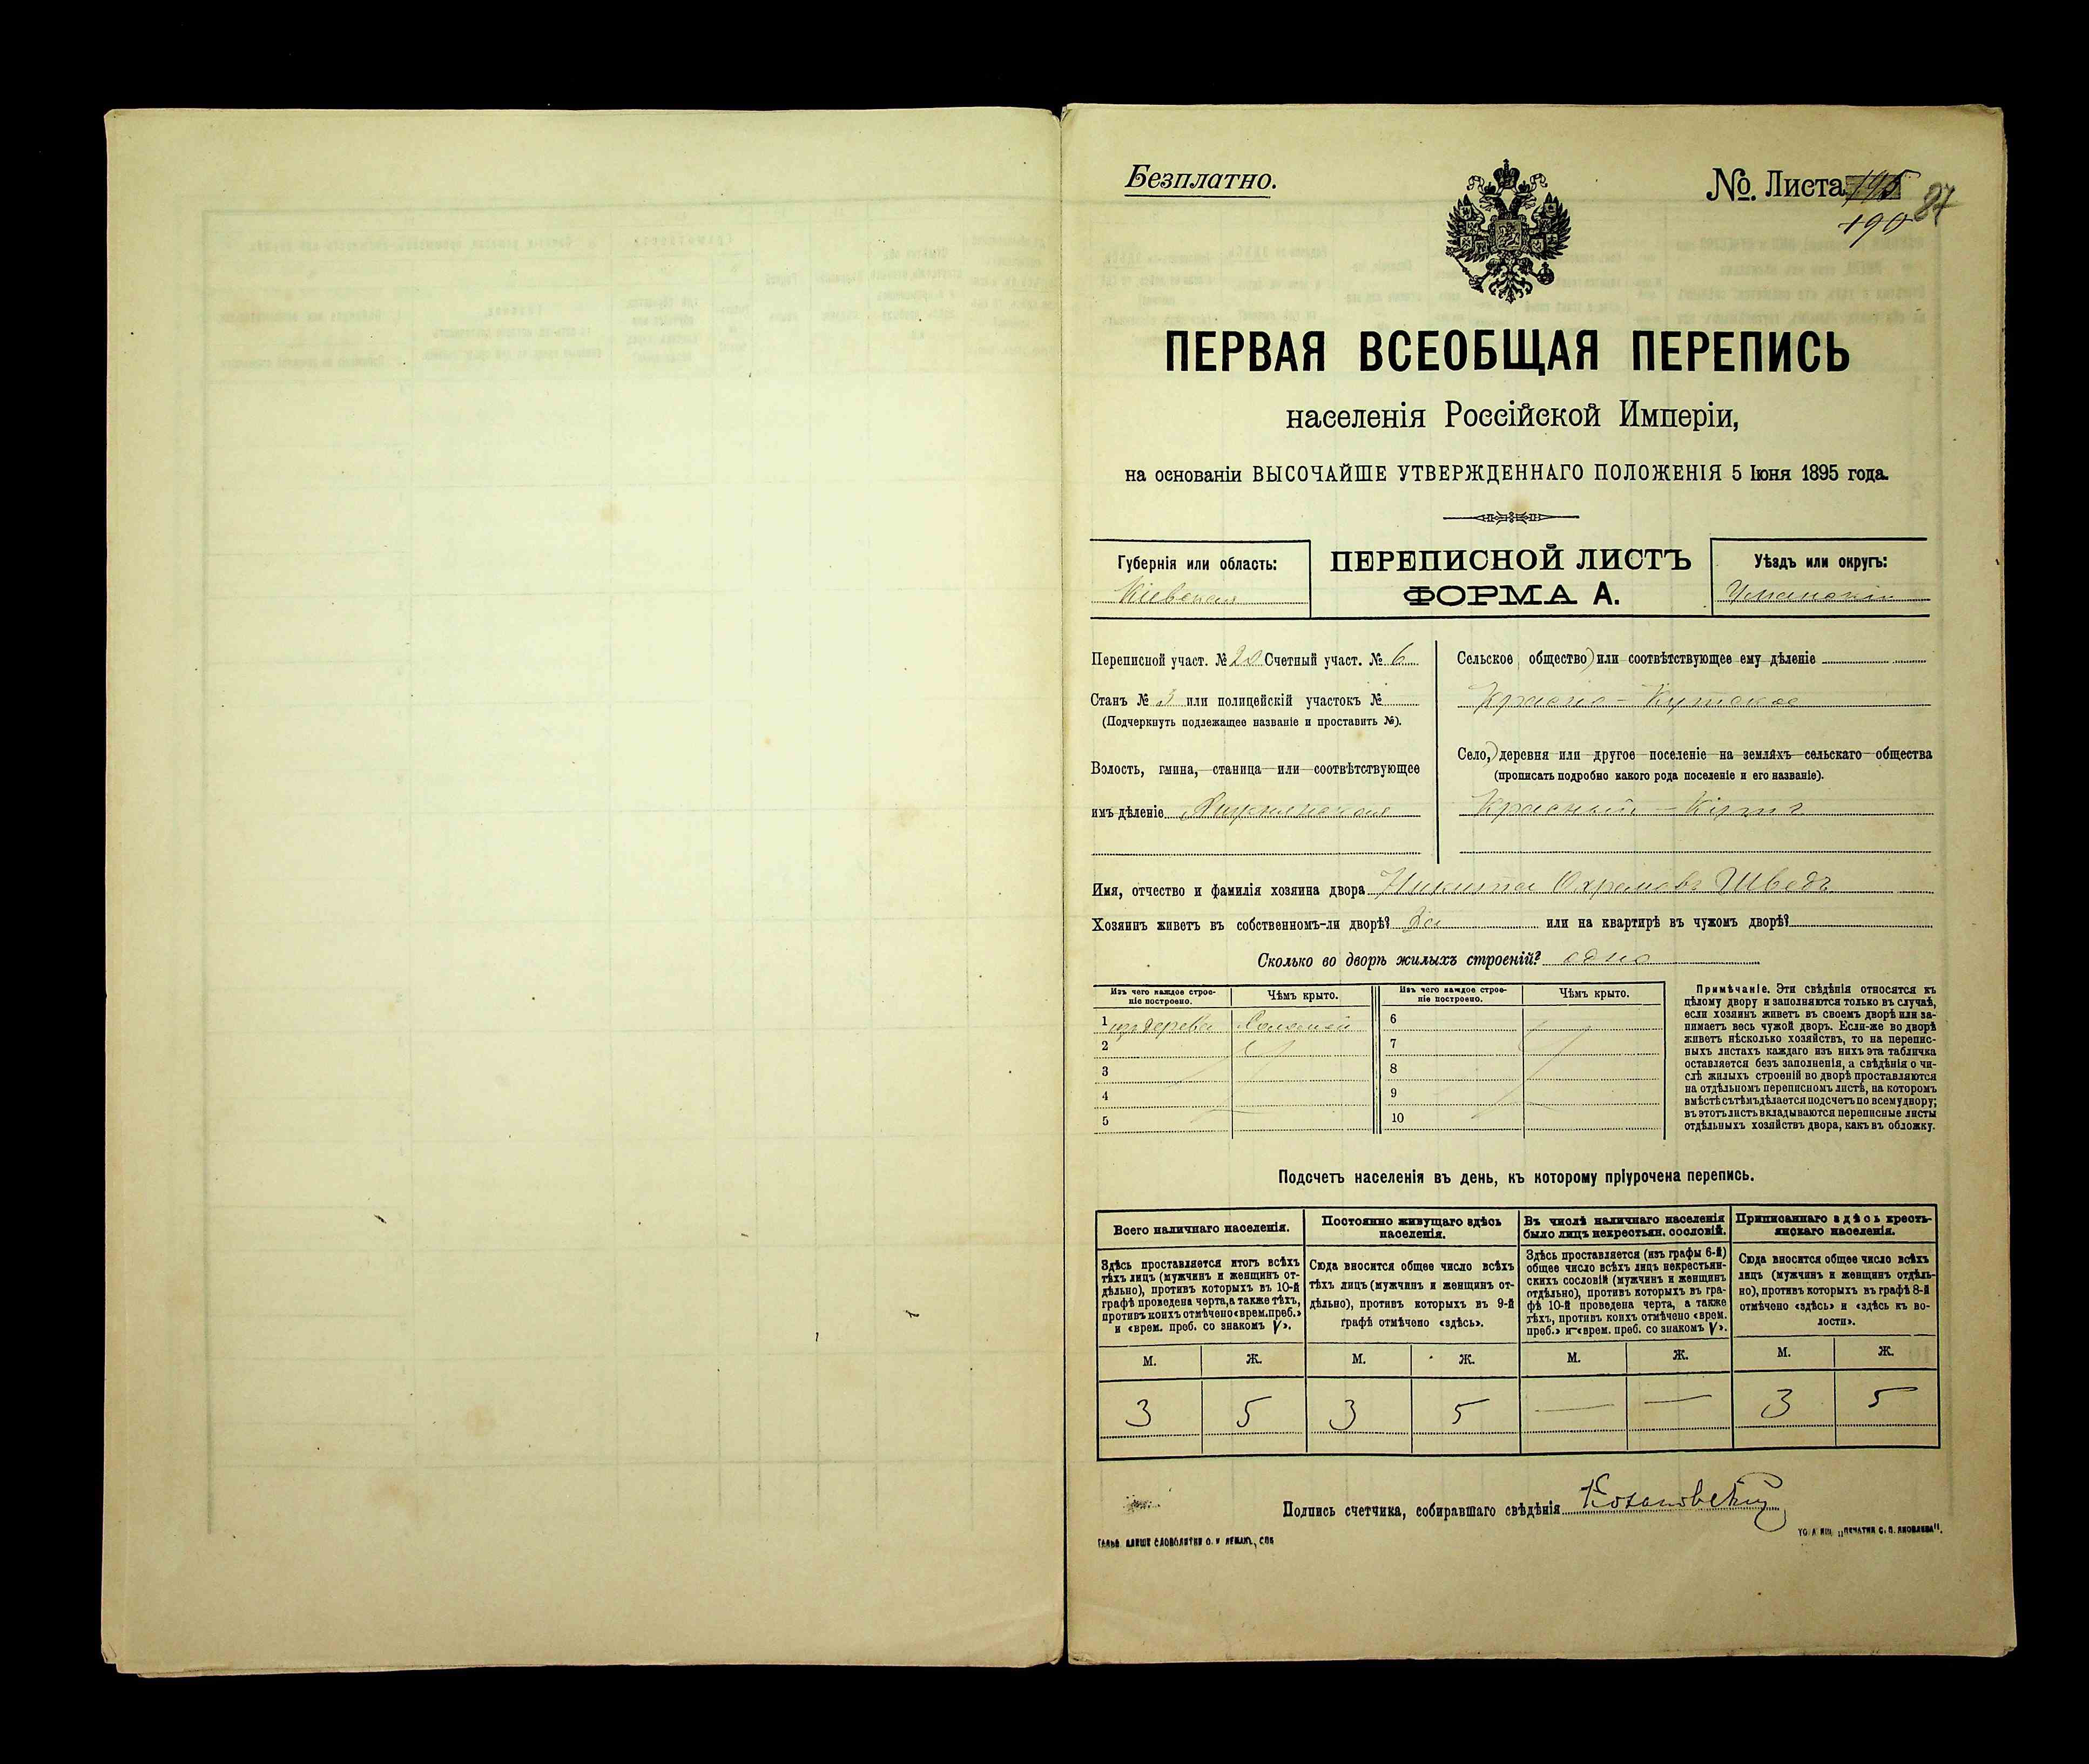 Безплатно.
№. Листа 195
190 87
ПЕРВАЯ ВСЕОБЩАЯ ПЕРЕПИСЬ
населенія Россійской Имперіи,
на основаніи ВЫСОЧАЙШЕ УТВЕРЖДЕННАГО ПОЛОЖЕНІЯ 5 Іюня 1895 года.
Губернія или область:
Кіевская
ПЕРЕПИСНОЙ ЛИСТЪ
ФОРМА А.
Уѣздъ или округъ:
Уманскій
Переписной участ. № 20 Счетный участ. № 6
Станъ № 3 или полицейскій участокъ №
(Подчеркнуть подлежащее названіе и проставить №).
Волость, гмина, станица или соотвѣтствующее
имъ дѣленіе
Сельское общество) или соотвѣтствующее ему дѣленіе
Красно-Кутское
Село,) деревня или другое поселеніе на земляхъ сельскаго общества
(прописать подробно какого рода поселеніе и его названіе).
Красный-Кутъ
Имя, отчество и фамилія хозяина двора Никита Охрамовъ Шведъ
Хозяинъ живетъ въ собственномъ-ли дворѣ? Да или на квартирѣ въ чужомъ дворѣ?
Сколько во дворѣ жилыхъ строеній? одно
Изъ чего каждое строе-
ніе построено.
Чѣмъ крыто.
Изъ чего каждое строе-
ніе построено.
Чѣмъ крыто.
1 изъ дерева Соломой
2
3
4
5
6
7
8
9
10
Примѣчаніе. Эти свѣдѣнія относятся къ
цѣлому двору и заполняются только въ случаѣ,
если хозяинъ живетъ въ своемъ дворѣ или за-
нимаетъ весь чужой дворъ. Если-же во дворѣ
живетъ нѣсколько хозяйствъ, то на перепис-
ныхъ листахъ каждаго изъ нихъ эта табличка
оставляется безъ заполненія, а свѣдѣнія о чи-
слѣ жилыхъ строеній во дворѣ проставляются
на отдѣльномъ переписномъ листѣ, на которомъ
вмѣстѣ съ тѣмъ дѣлается подсчетъ по всему двору;
въ этотъ листъ вкладываются переписные листы
отдѣльныхъ хозяйствъ двора, какъ въ обложку.
Подсчетъ населенія въ день, къ которому пріурочена перепись.
Всего наличнаго населенія.
Здѣсь проставляется итогъ всѣхъ
тѣхъ лицъ (мужчинъ и женщинъ от-
дѣльно), противъ которыхъ въ 10-й
графѣ проведена черта, а также тѣхъ,
противъ коихъ отмѣчено «врем. преб.»
и «врем. преб. со знакомъ V».
Постоянно живущаго здѣсь
населенія.
Сюда вносится общее число всѣхъ
тѣхъ лицъ (мужчинъ и женщинъ от-
дѣльно), противъ которыхъ въ 9-й
графѣ отмѣчено «здѣсь».
Въ числѣ наличнаго населенія
было лицъ некрестьян. сословій.
Здѣсь проставляется (изъ графы 6-й)
общее число всѣхъ лицъ некрестьян-
скихъ сословій (мужчинъ и женщинъ
отдѣльно), противъ которыхъ въ гра-
фѣ 10-й проведена черта, а также
тѣхъ, противъ коихъ отмѣчено «врем.
преб.» и «врем. преб. со знакомъ V».
Приписаннаго здѣсь кресть-
янскаго населенія.
Сюда вносится общее число всѣхъ
лицъ (мужчинъ и женщинъ отдѣль-
но), противъ которыхъ въ графѣ 8-й
отмѣчено «здѣсь» и «здѣсь къ во-
лости».
М. Ж. М. Ж. М. Ж. М. Ж.
3 5 3 5 — — 3 5
Подпись счетчика, собиравшаго свѣдѣнія